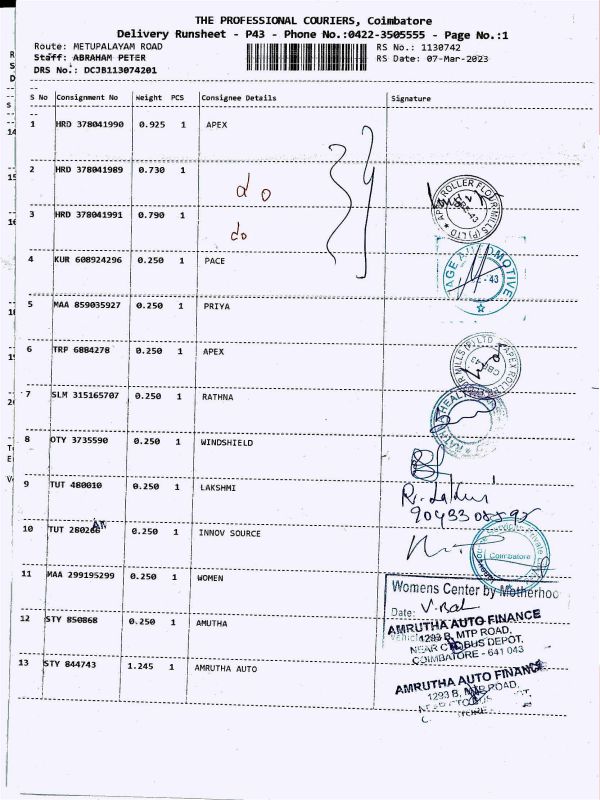 THE PROFESSIONAL COURIERS, Coimbatore
Delivery Runsheet - P43 - Phone No.:0422-3505555 - Page No.:1
Route: METUPALAYAM ROAD RS No.: 1130742
Staff: ABRAHAM PETER RS Date: 07-Mar-2023
DRS No.: DCJB113074201
S No Consignment No Weight PCS Consignee Details Signature
1 HRD 378041990 0.925 1 APEX
2 HRD 378041989 0.730 1 do
3 HRD 378041991 0.790 1 do
APEX ROLLER FLOUR MILLS (P) LTD
4 KUR 608924296 0.250 1 PACE
5 MAA 859035927 0.250 1 PRIYA
6 TRP 6884278 0.250 1 APEX
7 SLM 315165707 0.250 1 RATHNA
8 OTY 3735590 0.250 1 WINDSHIELD
9 TUT 480010 0.250 1 LAKSHMI
10 TUT 280266 0.250 1 INNOV SOURCE
Coimbatore
11 MAA 299195299 0.250 1 WOMEN
Womens Center by Motherhoo
Date:
12 STY 850868 0.250 1 AMUTHA
AMRUTHA AUTO FINANCE
1293 B, MTP ROAD,
NEAR CTC BUS DEPOT,
COIMBATORE - 641 043
13 STY 844743 1.245 1 AMRUTHA AUTO
AMRUTHA AUTO FINANCE
1293 B, MTP ROAD,